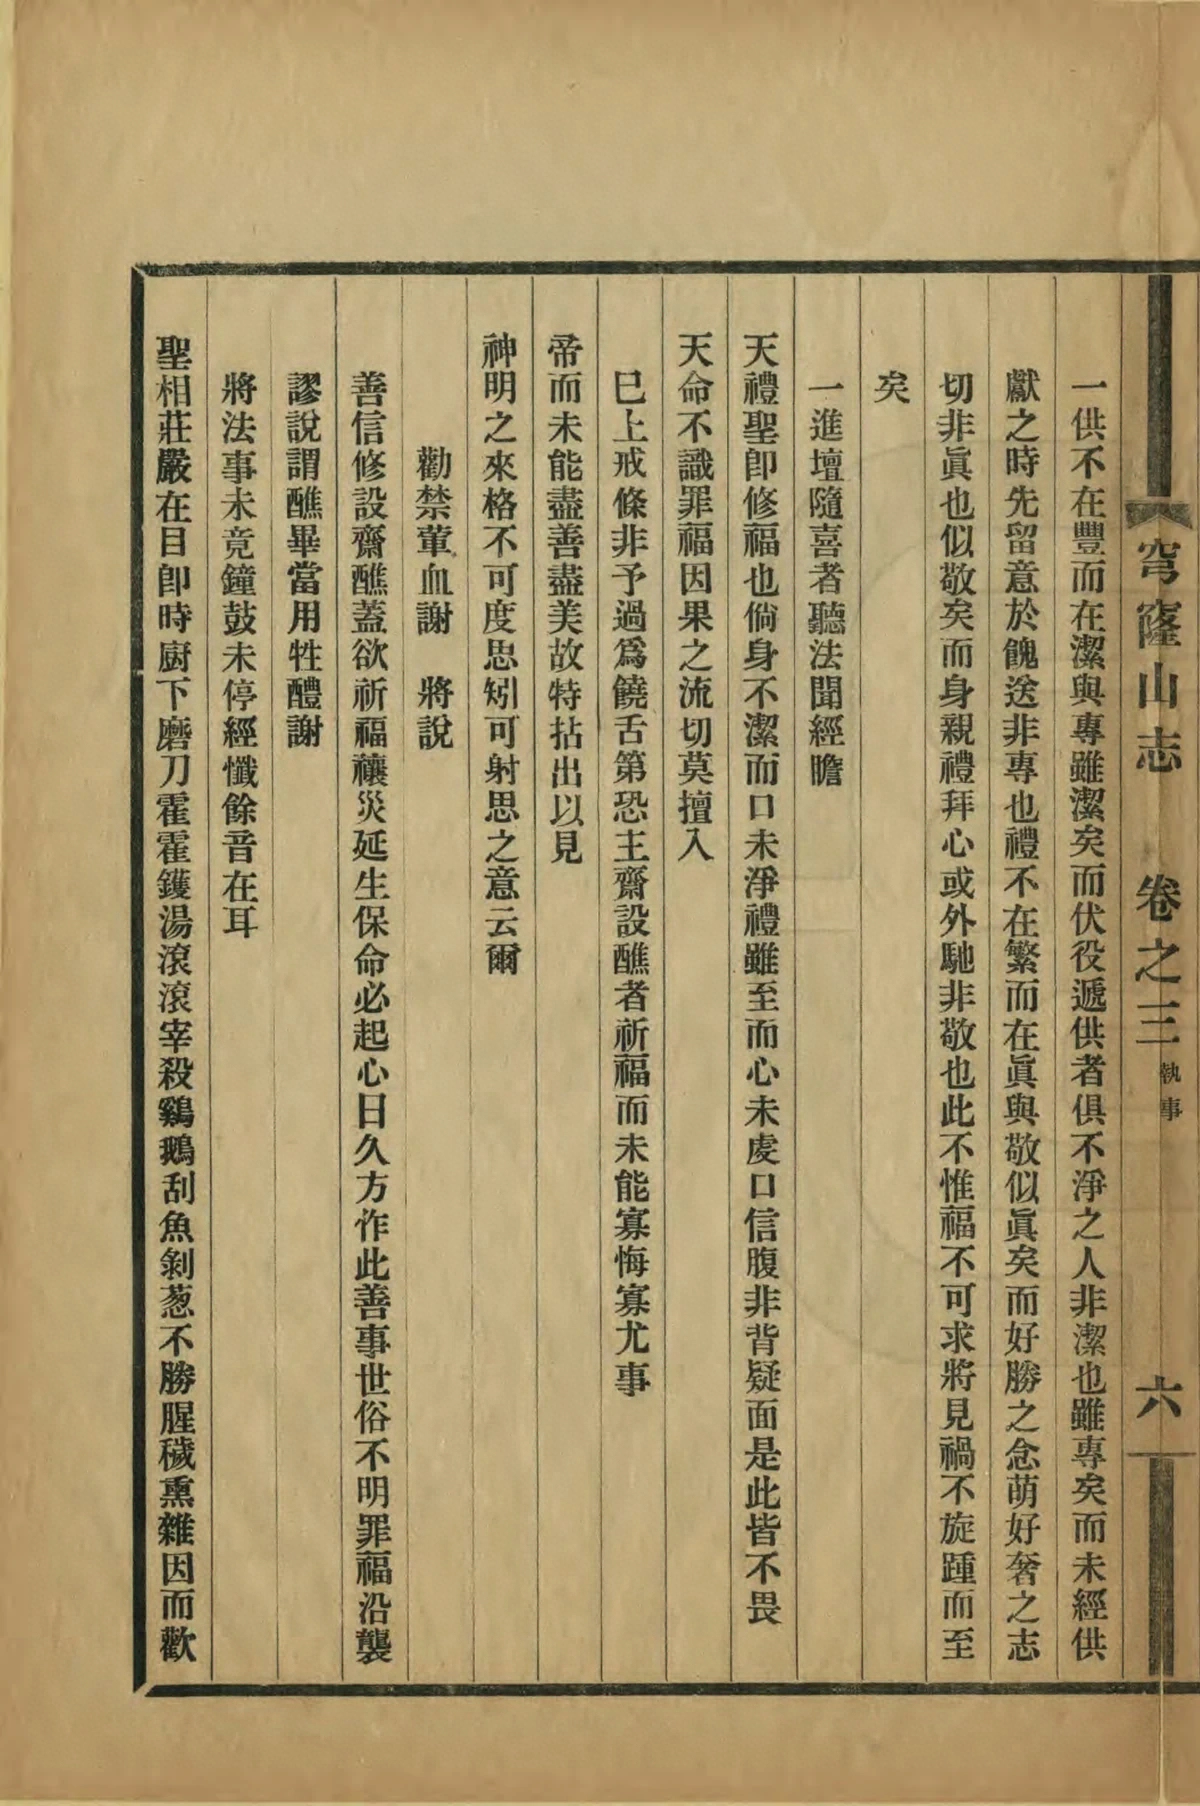 穹窿山志　卷之三　執事　六
一供不在豐而在潔與專雖潔矣而伏役遞供者俱不淨之人非潔也雖專矣而未經供
獻之時先留意於餽送非專也禮不在繁而在眞與敬似眞矣而好勝之念萌好奢之志
切非眞也似敬矣而身親禮拜心或外馳非敬也此不惟福不可求將見禍不旋踵而至
矣
一進壇隨喜者聽法聞經瞻
天禮聖卽修福也倘身不潔而口未淨禮雖至而心未虔口信腹非背疑面是此皆不畏
天命不識罪福因果之流切莫擅入
巳上戒條非予過爲饒舌第恐主齋設醮者祈福而未能寡悔寡尤事
帝而未能盡善盡美故特拈出以見
神明之來格不可度思矧可射思之意云爾
勸禁葷血謝　將說
善信修設齋醮蓋欲祈福禳災延生保命必起心日久方作此善事世俗不明罪福沿襲
謬說謂醮畢當用牲醴謝
將法事未竟鐘鼓未停經懺餘音在耳
聖相莊嚴在目卽時廚下磨刀霍霍鑊湯滾滾宰殺鷄鵝刮魚剝葱不勝腥穢熏雜因而歡